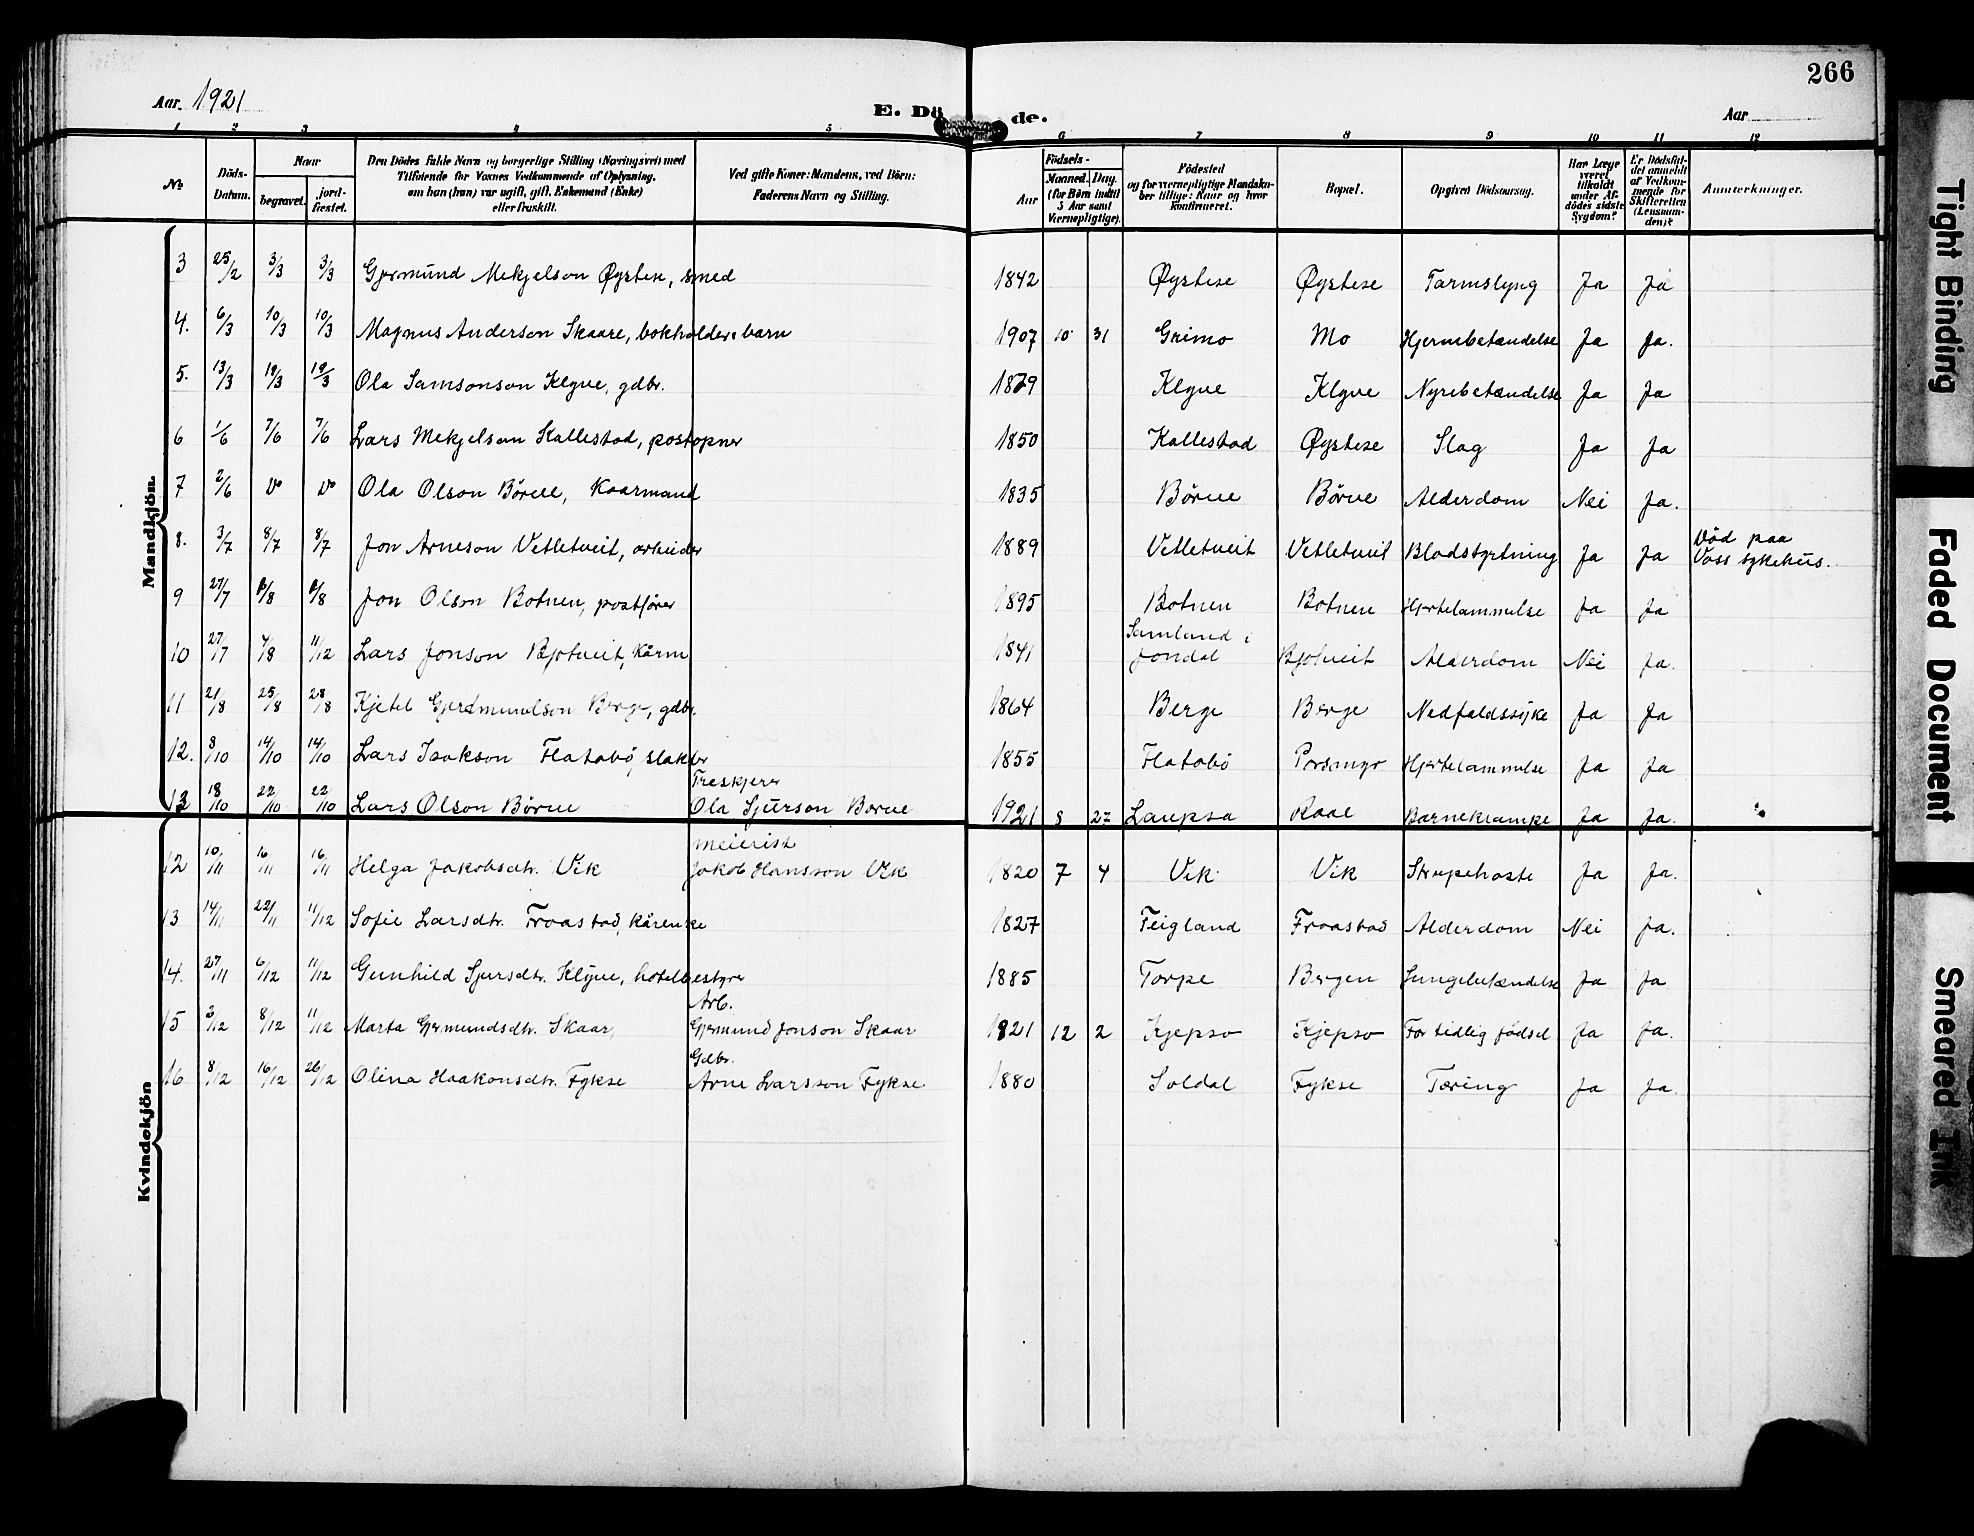 266
Aar. 1921
E. Döde.
Aar
1 2 3 4 5 6 7 8 9 10 11 12
No
Döds-Datum.
Naar
begravet.
jord-fæstet.
Den Dödes fulde Navn og borgerlige Stilling (Næringsvei) med
Tilföiende for Voxnes Vedkommende af Oplysning,
om han (hun) var ugift, gift, Enkemand (Enke)
eller fraskilt.
Ved gifte Koner: Mandens, ved Börn:
Faderens Navn og Stilling.
Födsels-
Aar
Maaned. Dag.
(for Börn indtil
5 Aar samt
Værnepligtige).
Födested
og for værnepligtige Mandska-
ber tillige: Naar og hvor
konfirmeret.
Bopæl.
Opgiven Dödsaarsag.
Har Læge
været
tilkaldt
under Af-
dödes sidste
Sygdom?
Er Dödsfal-
det anmeldt
af Vedkom-
mende for
Skifteretten
(Lensman-
den)?
Anmærkninger.
Mandkjön.
3 25/2 3/3 3/3 Gjermund Mekjelson Øystese, smed 1842 Øystese Øystese Tarmslyng Ja Ja
4. 6/3 10/3 10/3 Magnus Anderson Skaare, bokholders barn 1907 10 31 Grimo Mo Hjernebetændelse Ja Ja.
5. 13/3 19/3 19/3 Ola Samsonson Klyve, gdbr. 1879 Klyve Klyve Nyrebetændelse Ja Ja
6 1/6 7/6 7/6 Lars Mekjelson Kallestad, postopner 1850 Kallestad Øystese Slag Ja Ja
7 2/6 Do Do Ola Olson Börve, Kaarmand 1835 Börve Börve Alderdom Nei Ja.
8. 3/7 8/7 8/7 Jon Arneson Vetletveit, arbeider 1889 Vetletveit Vetletveit Blodstyrtning Ja Ja Död paa
Voss sykehus.
9 27/7 6/8 6/8 Jon Olson Botnen, postförer 1895 Botnen Botnen Hjertelammelse Ja Ja
10 27/7 4/8 11/12 Lars Jonson Bjotveit, Kårm 1841 Samland i
Jondal Bjotveit Alderdom Nei Ja.
11 21/8 25/8 28/8 Kjetel Gjerdmundson Berge, gdbr. 1864 Berge Berge Nedfaldssyke Ja Ja
12. 8/10 14/10 14/10 Lars Isakson Flatabö, slakter 1855 Flatabö Porsmyr Hjertelammelse Ja Ja
Treskjerer
13 18/10 22/10 22/10 Lars Olson Börve Ola Sjurson Borve 1921 8 27 Laupsa Raae Barnekrampe Ja Ja.
Kvindekjön
meierist
12 10/11 16/11 16/11 Helga Jakobsdtr. Vik Jakob Hansson Vik 1820 7 4 Vik Vik Strupehoste Ja Ja.
13 14/11 22/11 11/12 Sofie Larsdtr. Fraastad, kårenke 1827 Teigland Fraastad Alderdom Nei Ja.
14. 27/11 6/12 11/12 Gunhild Sjursdtr. Klyve, hotelbestyrer 1885 Torpe Bergen Lungebetændelse Ja Ja
Arb.
15 3/12 8/12 11/12 Marta Gjermundsdtr. Skaar, Gjermund Jonson Skaar 1821 12 2 Kjepso Kjepso For tidlig födsel Ja Ja.
Gdbr.
16 8/12 16/12 26/12 Olina Haakonsdtr. Fykse Arne Larsson Fykse 1880 Soldal Fykse Tæring Ja Ja.
Tight Binding
Faded Document
Smeared Ink